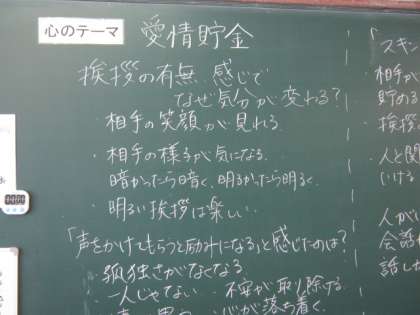 心のテーマ
愛情貯金
挨拶の有無、感じで
なぜ気分が変わる?
・相手の笑顔が見れる
・相手の様子が気になる
暗かったら暗く、明るかったら明るく
・明るい挨拶は楽しい
「声をかけてもらうと励みになる」と感じたのは?
・孤独さがなくなる
・一人じゃない 不安が取り除ける
心が落ち着く
「スキン
相手の
貯める
挨拶
・人と関
いける
人が
会話
話し